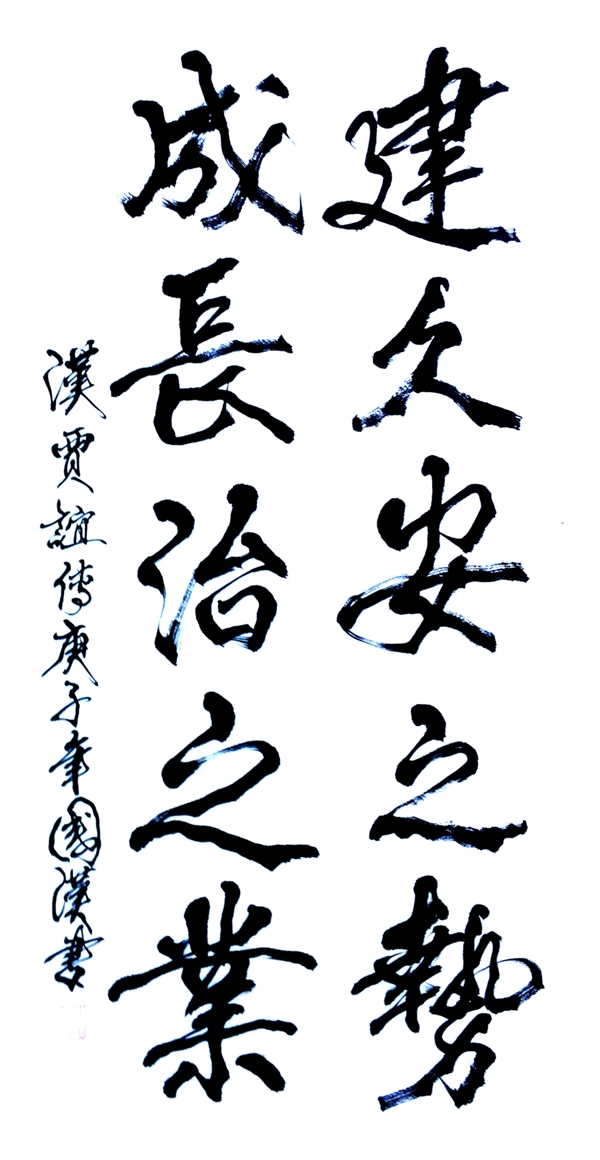 建久安之勢
成長治之業
漢賈誼傳庚子年國漢書